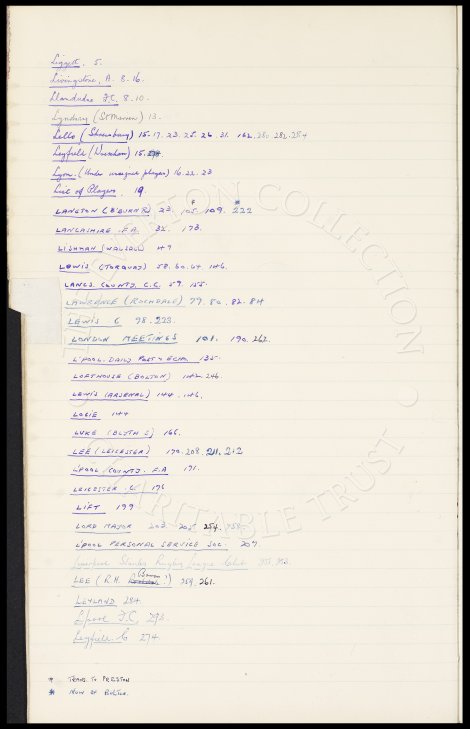 Liggett. 5.
Livingstone, A. 8. 16.
Llandudno F.C. 8. 10.
Lyndsay (St Mirren) 13.
Lello (Shrewsbury) 15. 17. 23. 25. 26. 31. 162. 250. 282. 284
Leyfield (Wrexham) 15.
Lyon (Under assigned players) 16. 22. 23
List of Players. 19.
LANGTON (B'BURN R) 23. 105. 109. 222
LANCASHIRE. F.A. 32. 173.
LISHMAN (WALSALL) 49
LEWIS (TORQUAY) 58. 60. 64. 146.
LANCS COUNTY. C.C. 59. 155.
LAWRENCE (ROCHDALE) 79. 80. 82. 84
LEWIS C 98. 223.
LONDON MEETINGS 101. 190. 262.
L'POOL. DAILY POST & ECHO 135.
LOFTHOUSE (BOLTON) 142. 246.
LEWIS (ARSENAL) 144. 146.
LOGIE 144
LUKE (BLYTH S) 166.
LEE (LEICESTER) 170. 208. 211. 212
L'POOL COUNTY. F.A 171.
LEICESTER C. 176
LIFT 199
LORD MAYOR 202. 205. 254. 258
L'POOL PERSONAL SERVICE SOC. 207.
Liverpool Stanley Rugby League Club
LEE (R.H. Bacon !) 259. 261.
LEYLAND 284
L'pool F.C. 293.
Leyfield. C 274
* TRANS. TO PRESTON
* NOW AT BOLTON.
WELLINGTON COLLECTION
CHARITABLE TRUST